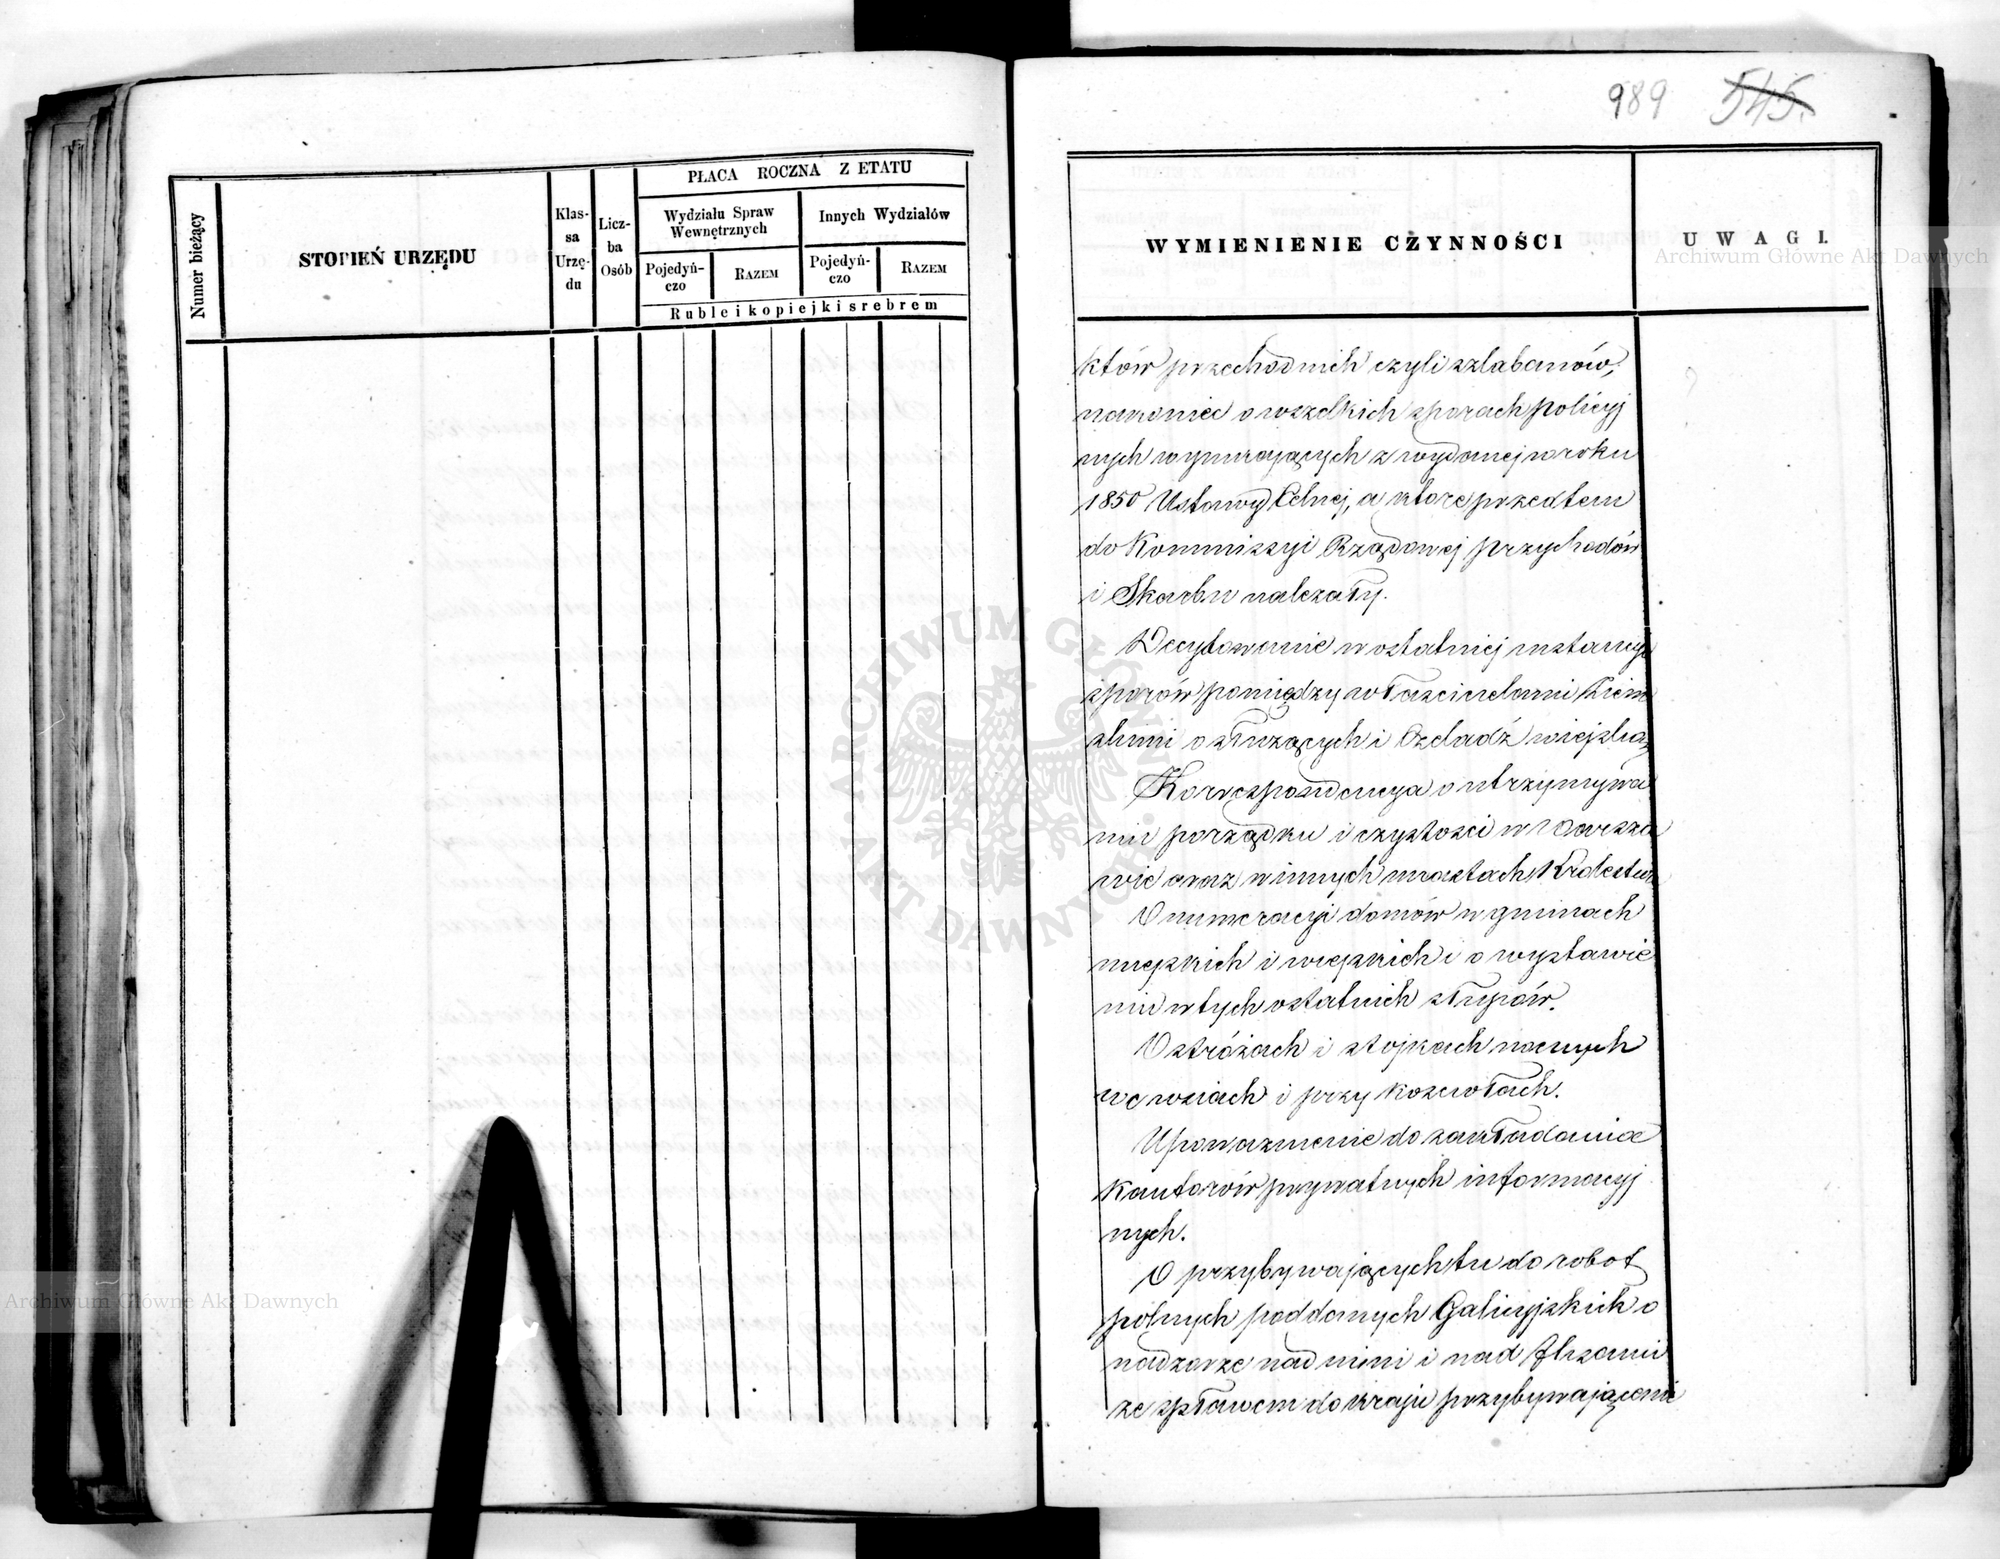 Numer bieżący
STOPIEŃ URZĘDU
Klas-
sa
Urzę-
du
Licz-
ba
Osób
PŁACA ROCZNA Z ETATU
Wydziału Spraw
Wewnętrznych
Innych Wydziałów
Pojedyń-
czo
RAZEM
Pojedyń-
czo
RAZEM
Ruble i kopiejki srebrem
989 545.
WYMIENIENIE CZYNNOŚCI
UWAGI.
któw przechodnich czyli szlabanów,
nakoniec o wszelkich sporach policyj
nych wynikających z wydanej w roku
1850 Ustawy Celnej, a które przedtem
do Kommissyi Rządowej Przychodów
i Skarbu należały.
Decydowanie w ostatniej instancyi
sporów pomiędzy właścicielami Ziem
skimi o służących i Czeladź wiejską
Korrespondencya o utrzymywa
niu porządku i czystości w Warsza
wie oraz w innych miastach Królestwa
O numeracyi domów w gminach
miejskich i wiejskich i o wystawie
niu w tych ostatnich słupów.
O stróżach i stojkach nocnych
we wsiach i przy kościołach.
Upoważnienie do zakładania
Kantorów prywatnych informacyj
nych.
O przybywających tu do robot
polnych poddanych Galicyjskich o
nadzorze nad nimi i nad flisami
ze spławem do kraju przybywającemi
ARCHIWUM GŁÓWNE
AKT DAWNYCH
Archiwum Główne Akt Dawnych
Archiwum Główne Akt Dawnych